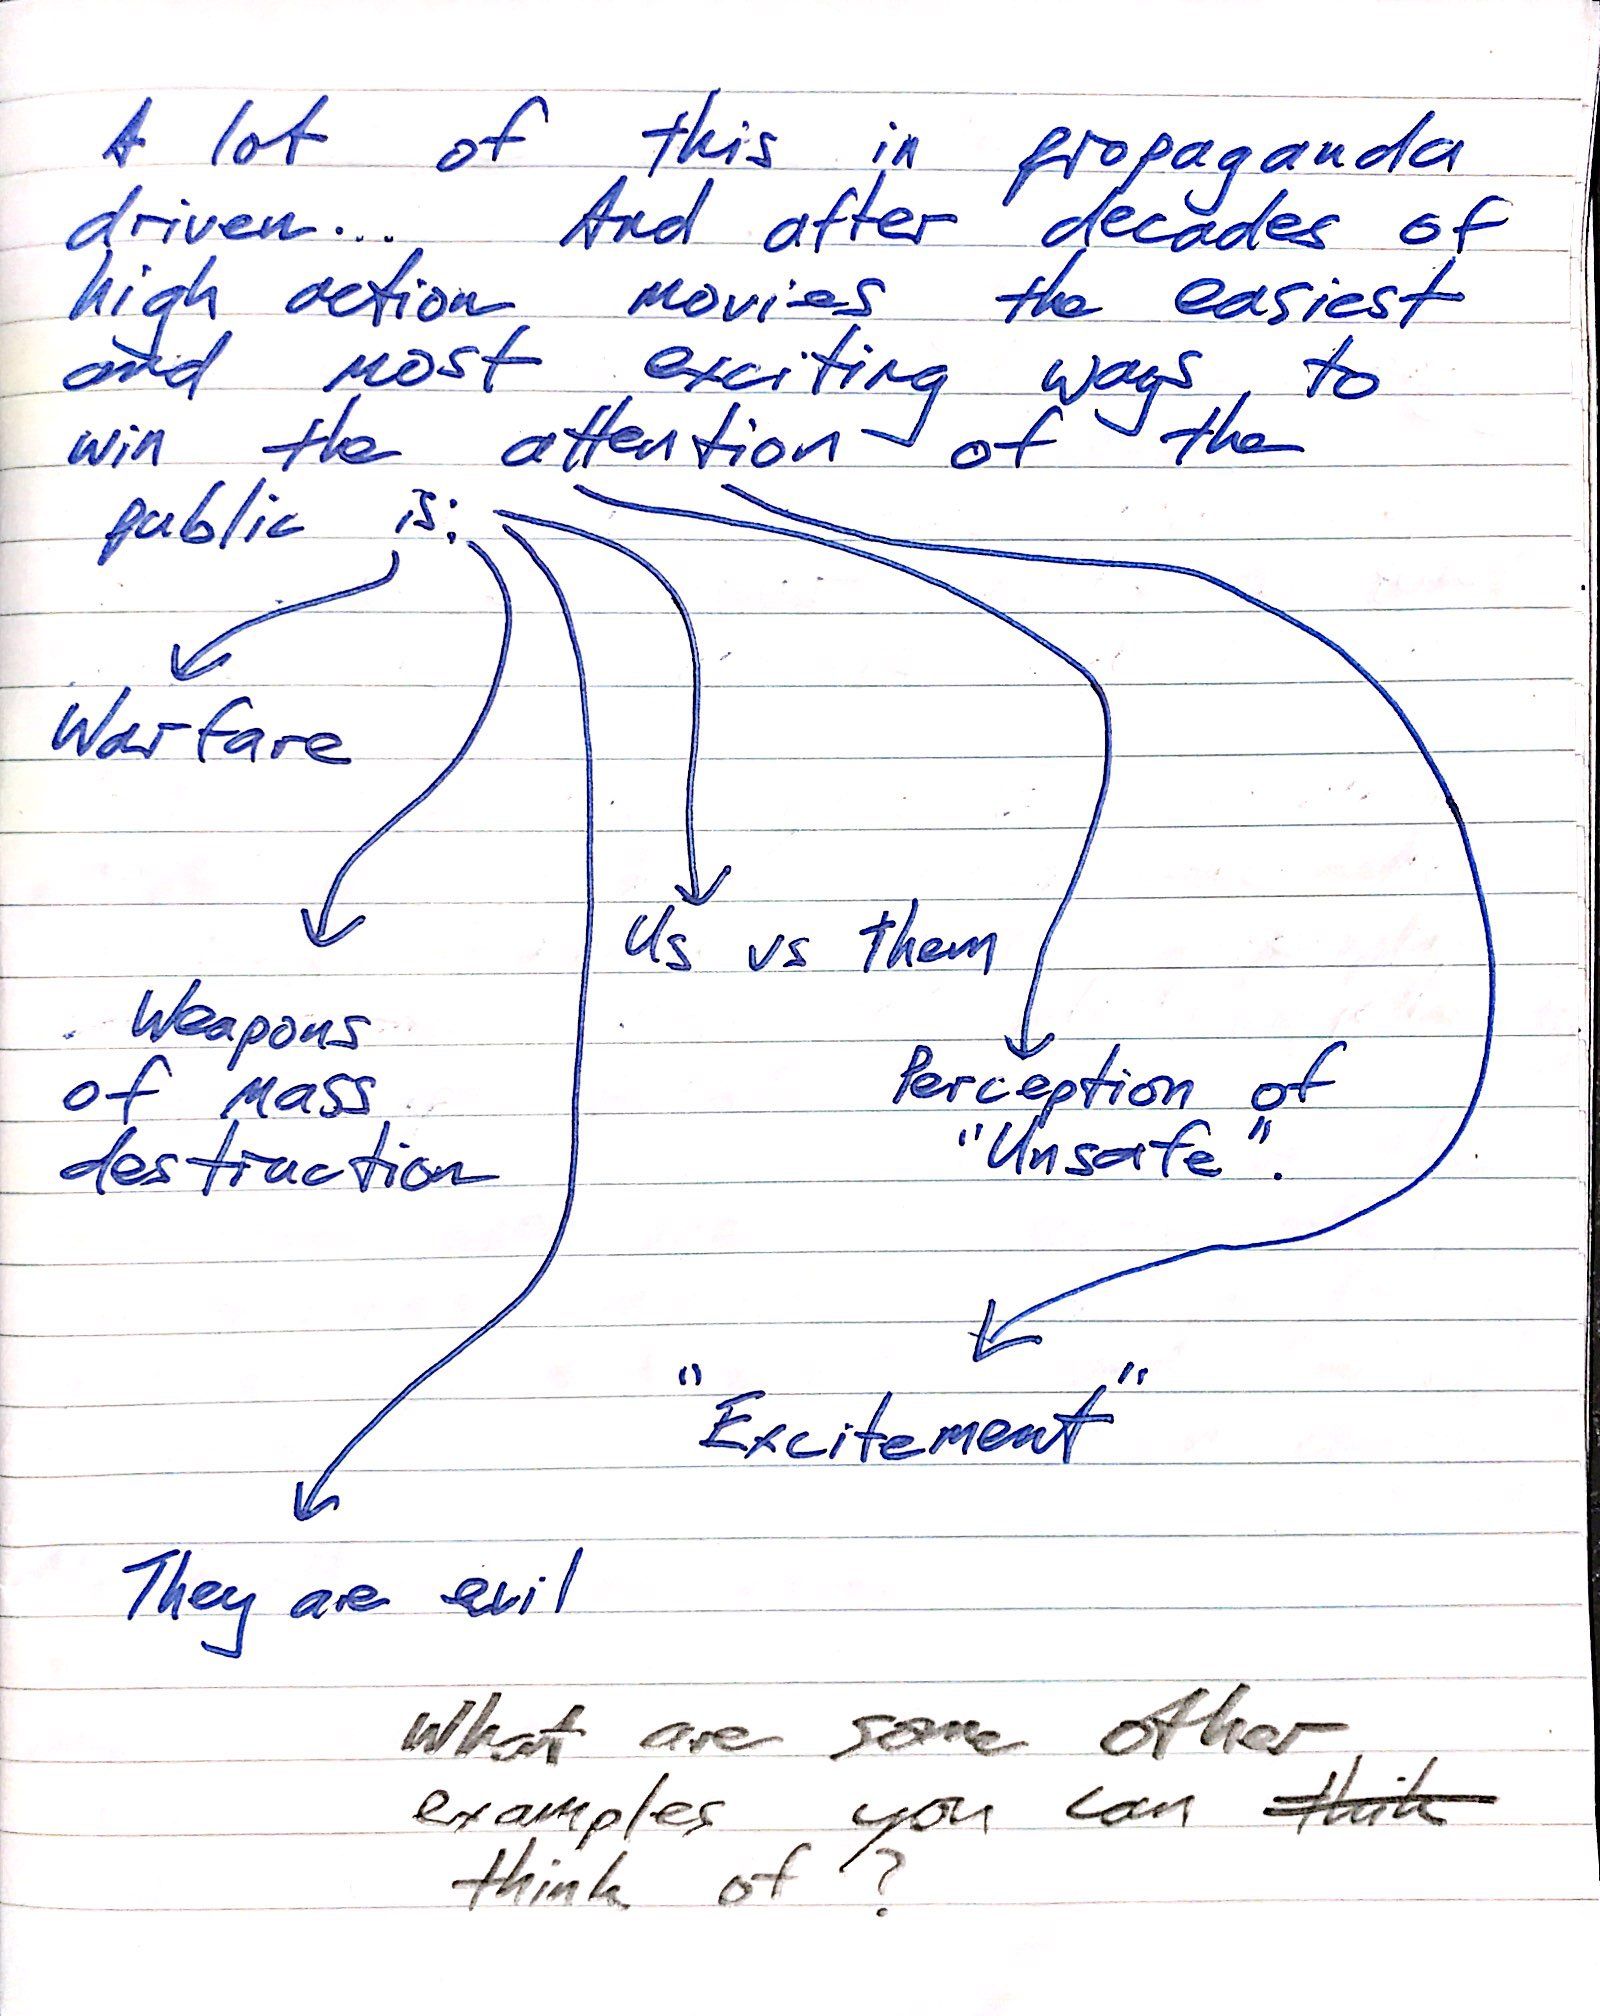 A lot of this in propaganda
driven... And after decades of
high action movies the easiest
and most exciting ways to
win the attention of the
public is:
Warfare
Us vs them
Weapons
of mass
destruction
Perception of
"Unsafe".
"Excitement"
They are evil
What are some other
examples you can think
think of?